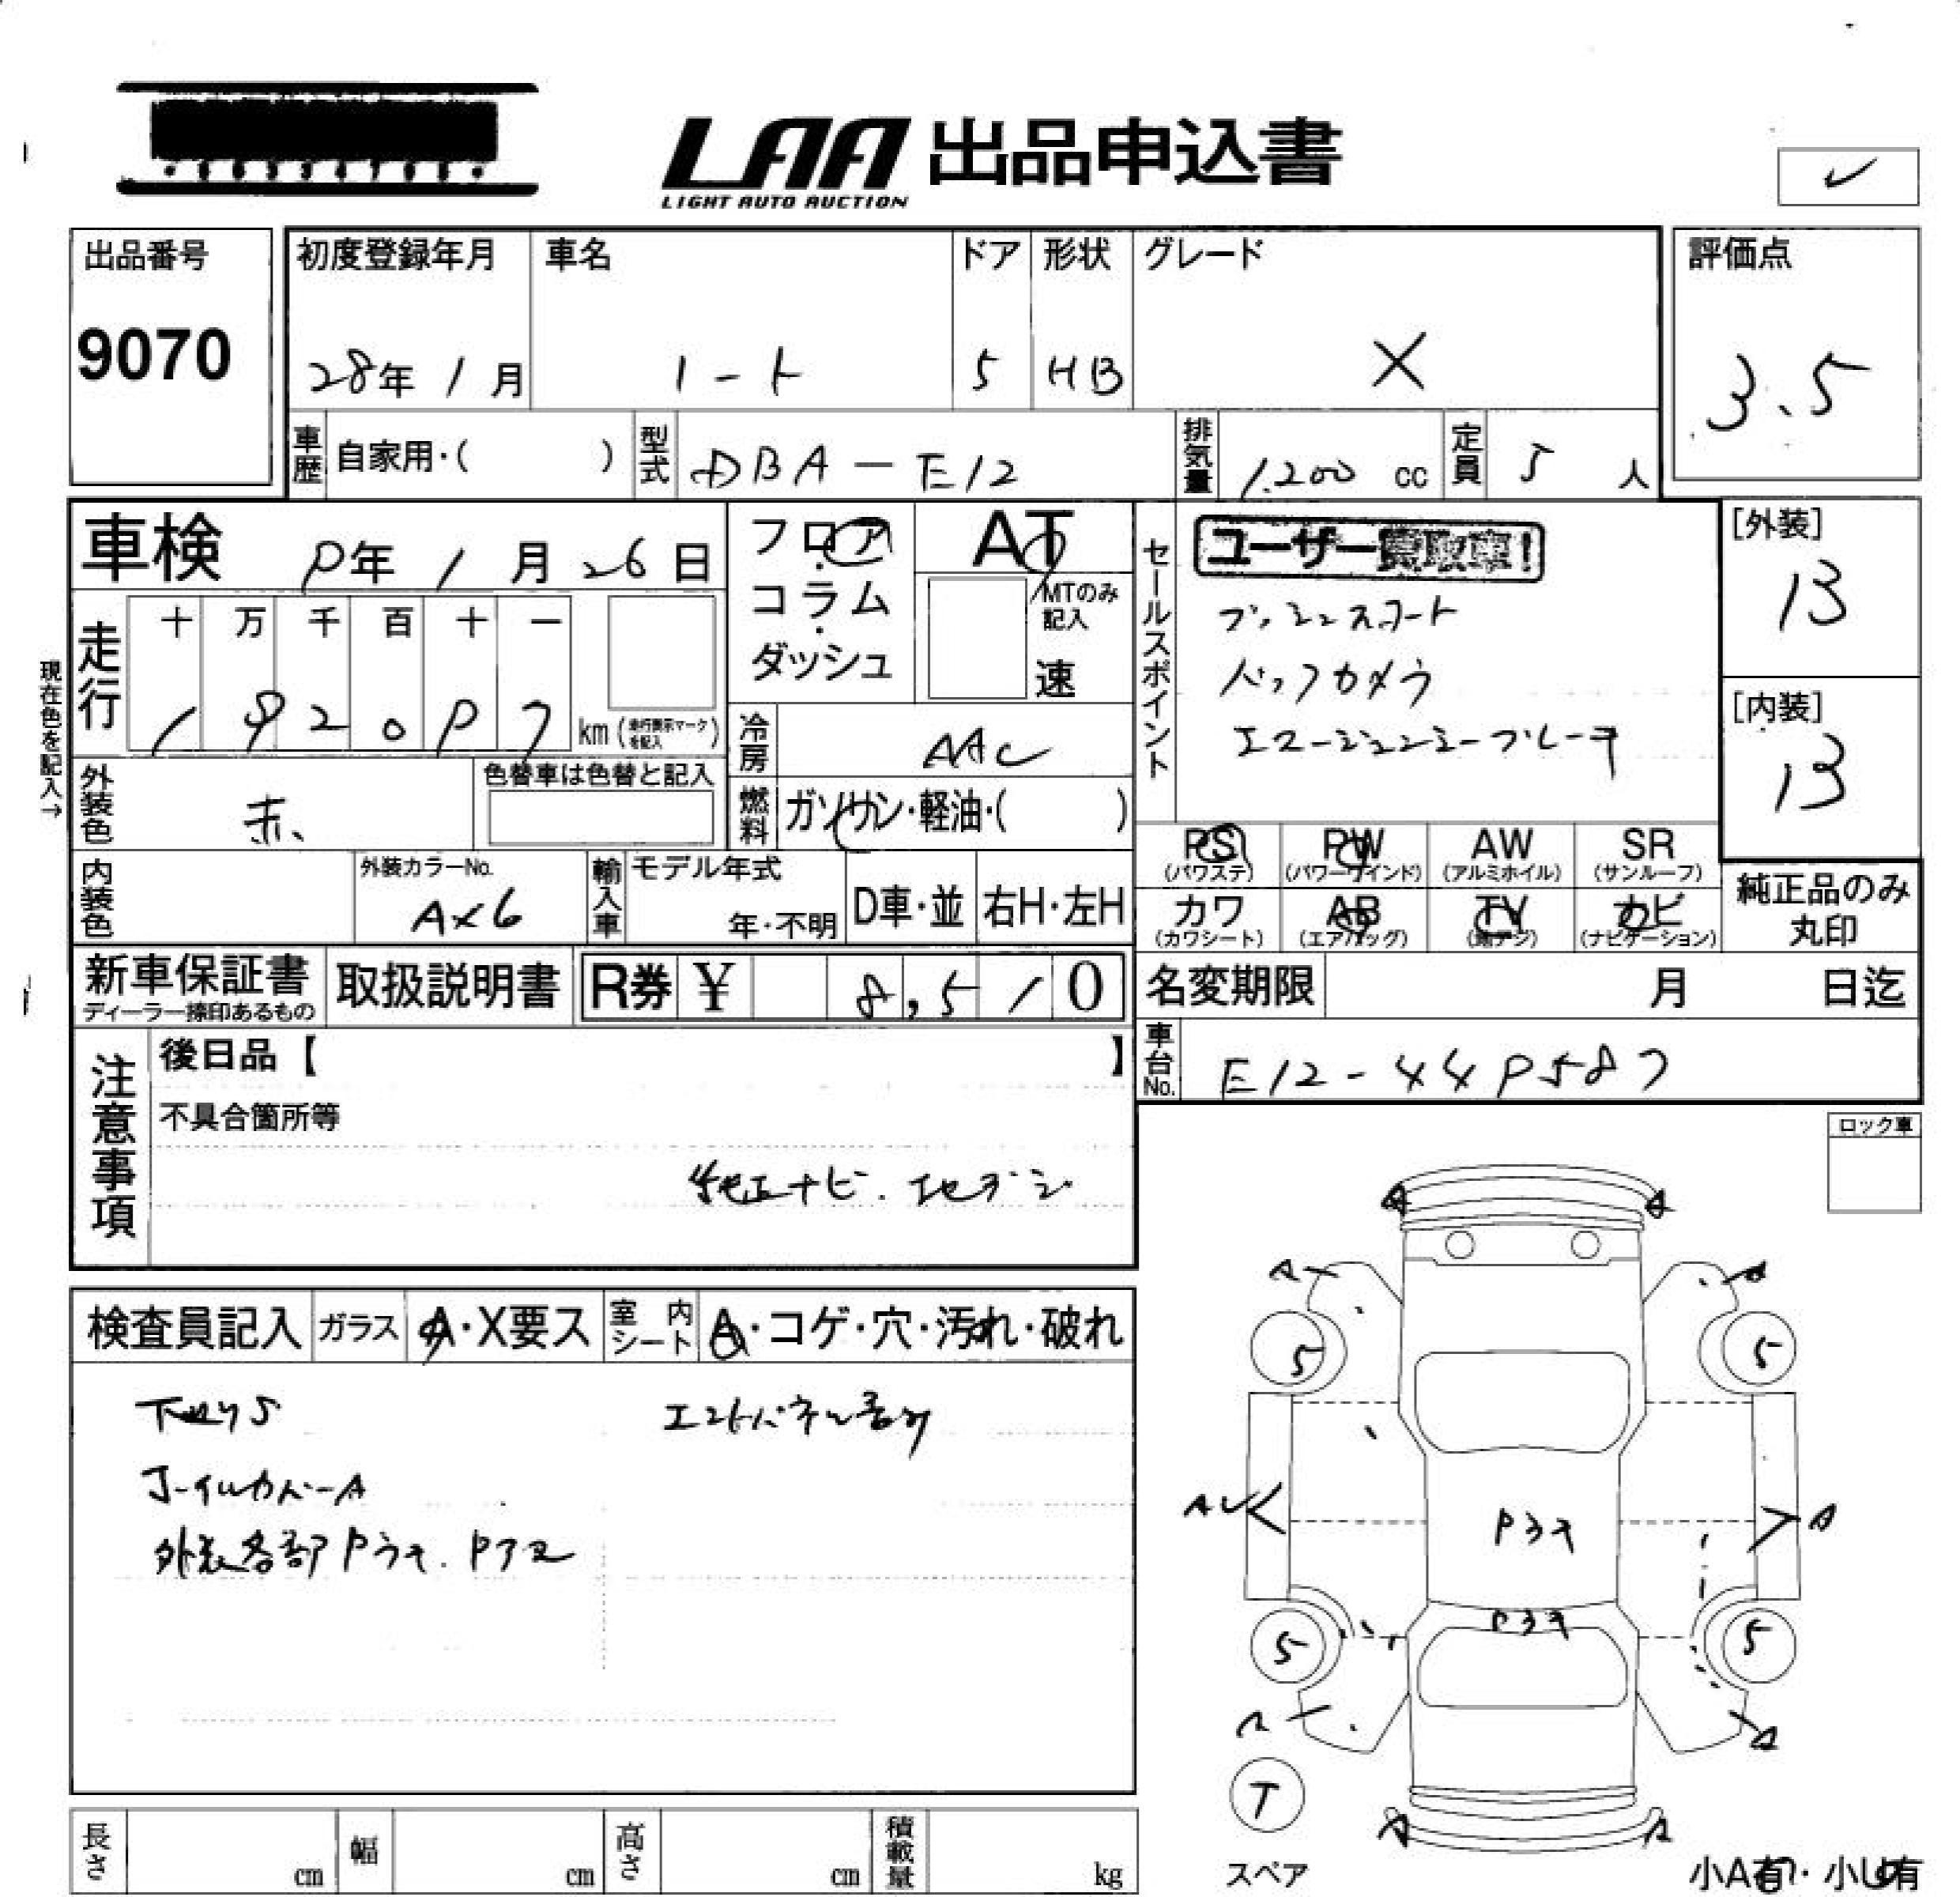 LAA 出品申込書
LIGHT AUTO AUCTION
出品番号
9070
初度登録年月
28年 1月
車名
ノート
ドア
5
形状
HB
グレード
X
評価点
3.5
車歴
自家用・( )
型式
DBA-E12
排気量
1,200 cc
定員
5 人
車検
9年 1月 26日
フロア・コラム・ダッシュ
AT
MTのみ記入
速
セールスポイント
ユーザー買取車!
プッシュスタート
バックカメラ
エマージェンシーブレーキ
[外装]
B
[内装]
B
現在色を記入→
走行
十 万 千 百 十 一
km(走行表示マークを記入)
冷房
AAC
外装色
赤
色替車は色替と記入
燃料
ガソリン・軽油・( )
PS
(パワステ)
PW
(パワーウインド)
AW
(アルミホイル)
SR
(サンルーフ)
内装色
外装カラーNo.
AX6
輸入車
モデル年式
年・不明
D車・並
右H・左H
カワ
(カワシート)
AB
(エアバッグ)
TV
(地デジ)
ナビ
(ナビゲーション)
純正品のみ丸印
新車保証書
ディーラー捺印あるもの
取扱説明書
R券 ¥ 8,510
名変期限 月 日迄
車台No.
E12-449587
注意事項
後日品【 】
不具合箇所等
純正ナビ.地デジ
ロック車
検査員記入
ガラス
A・X要ス
室内シート
A・コゲ・穴・汚れ・破れ
下回りS
エンドパネル歪み
ホイルカバーA
外装各部Pラキ.Pアヌ
A
A
A
A
5
5
AU
A
Pラキ
Pラキ
5
5
A
A
T
スペア
A
A
小A有・小U有
長さ cm
幅 cm
高さ cm
積載量 kg